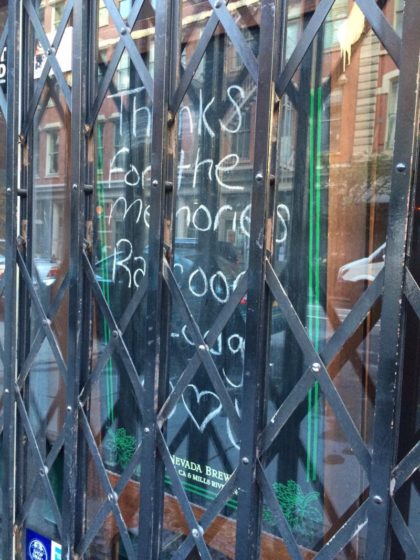 Thanks
for the
memories
Raccoon
Lodge
♡
NEVADA BREW
CA & MILLS RIV